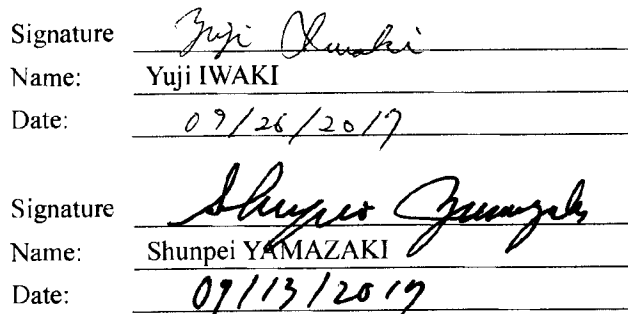 Signature Yuji Iwaki
Name: Yuji IWAKI
Date: 09/26/2017
Signature Shunpei Yamazaki
Name: Shunpei YAMAZAKI
Date: 09/13/2017